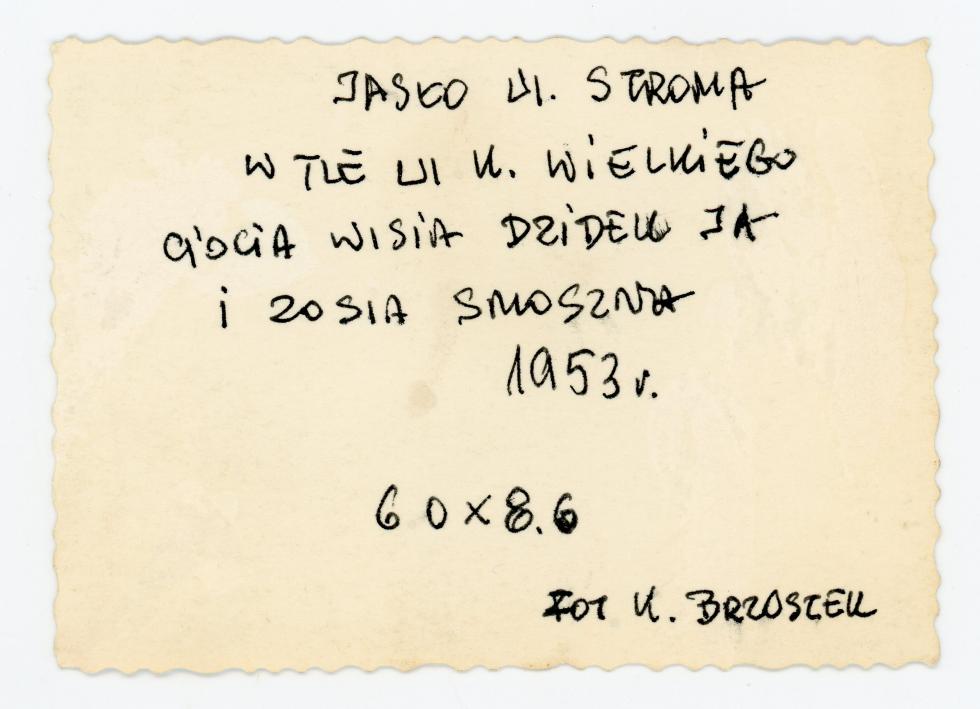 JASŁO UL. STROMA
W TLE UL K. WIELKIEGO
CIOCIA WISIA DZIDEK JA
i ZOSIA SMOSZNA
1953 r.
6 0 x 8.6
FOT K. BRZOSTEK